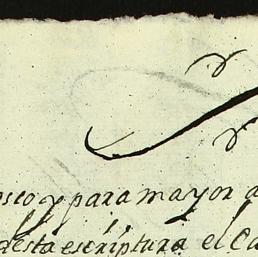 y para mayor a
desta escriptura el Ca